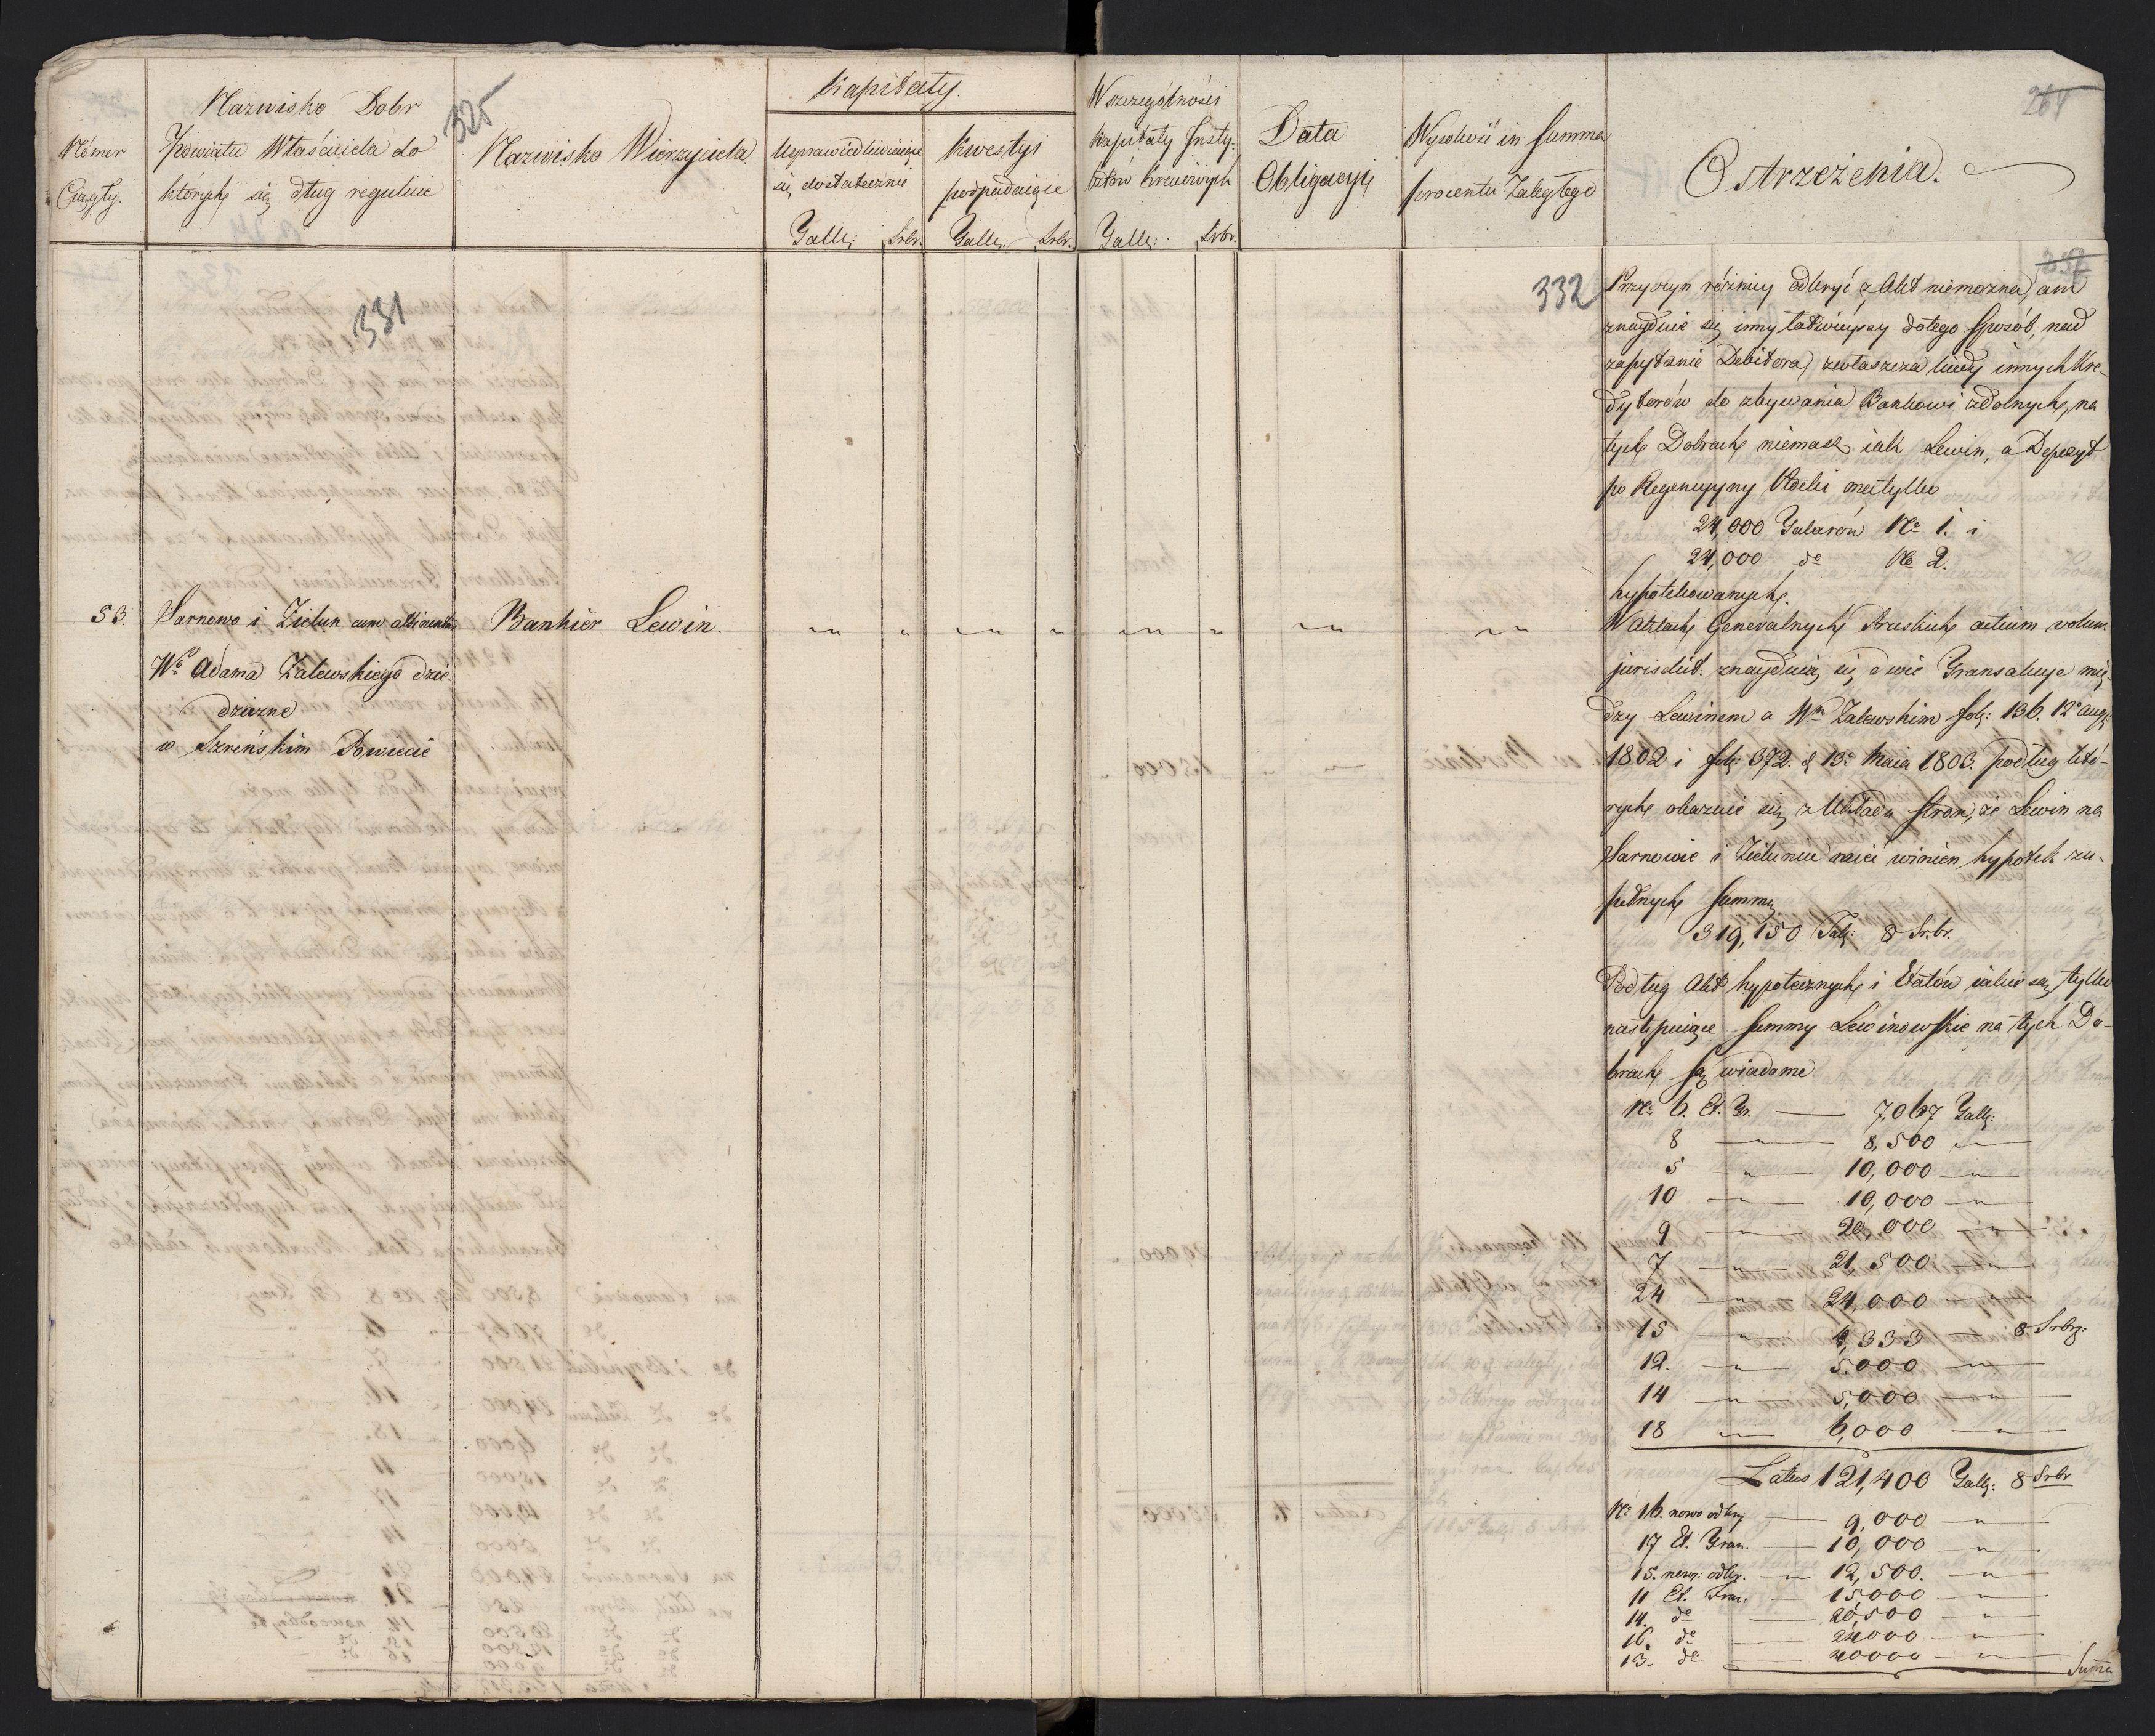 325
Nómer
Ciągły.
Nazwisko Dobr
Powiatu Właściciela do
których się dług reguluie
Nazwisko Wierzyciela
Kapitały.
Usprawiedliwiaiące
się dostatecznie
Tall: Srbr.
Kwestyi
podpadaiące
Tall: Srbr.
W szczególności
Kapitały Insty-
tutów Kraiowych
Tall: Srbr.
Data
Obligacyi
Wysokość in Summa
procentu Zaległego
Ostrzeżenia.
331
53.
Sarnowo i Zielun cum attinentiis
Wo Adama Zalewskiego dzie-
dziczne
w Szreńskim Powiecie
Bankier Lewin.
332
Przyczyn różnicy odkryć z Akt niemożna, ani
znayduie się inny łatwieyszy do tego sposób, nad
zapytanie Debitora, zwłaszcza kiedy innych Kre-
dytorów do zbywania Bankowi zdolnych, na
tych Dobrach niemasz iak Lewin, a Depozyt
po Regencyyny Płocki ma tylko
24,000 Talarów No 1. i
24,000 do No 2.
hypotekowanych.
W aktach Generalnych Pruskich actium volun.
jurisdict: znayduią się dwie Transakcye mię-
dzy Lewinem a Wm Zalewskim fol: 136. 12o aug:
1802 i fol: 372. d 13o Maia 1803. podług któ-
rych okazuie się z Układu stron, że Lewin na
Sarnowie i Zieluniu mieć winien hypotek zu-
pełnych Summę
319,150 Tal: 8 Srbr.
Podług Akt hypotecznych i Etatów iakie są, tylko
następuiące Summy Lewinowskie na tych Do-
brach są wiadome
No 6. Et. Gr. — 7,067 Tall:
8 — 8,500 —
5 — 10,000 —
10 — 10,000 —
9 — 20,000 —
7 — 21,500 —
24 — 24,000 —
15 — 4,333 — 8 Srbr:
12. — 5,000 —
14 — 5,000 —
18 — 6,000 —
Latus 121,400 Tall: 8 Srbr
No 16. nowo odkry — 9,000 —
17 Et. Gran. — 10,000 —
15. now: odkr. — 12,500. —
11 Et. Fran: — 15,000 —
14. do — 20,500 —
16. do — 24000 —
13. do — 40000 —
Summa